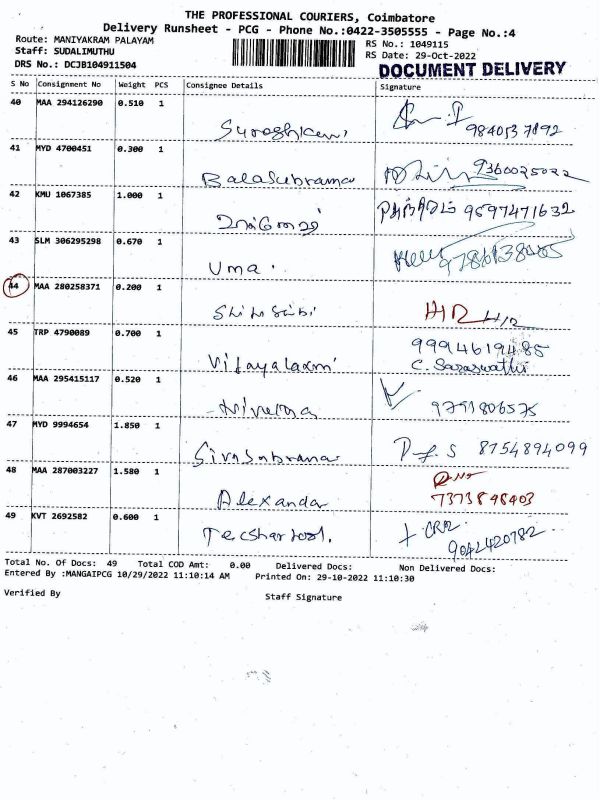 THE PROFESSIONAL COURIERS, Coimbatore
Delivery Runsheet - PCG - Phone No.:0422-3505555 - Page No.:4
Route: MANIYAKRAM PALAYAM
Staff: SUDALIMUTHU
DRS No.: DCJB104911504
RS No.: 1049115
RS Date: 29-Oct-2022
DOCUMENT DELIVERY
S No Consignment No Weight PCS Consignee Details Signature
40 MAA 294126290 0.510 1
41 MYD 4700451 0.300 1
Balasubrama 9360025022
42 KMU 1067385 1.000 1
9597471632
43 SLM 306295298 0.670 1
Uma
44 MAA 280258371 0.200 1
45 TRP 4790089 0.700 1
Vijayalaxmi 9994619485
C. Saraswathi
46 MAA 295415117 0.520 1
9791806575
47 MYD 9994654 1.850 1
Sivasubrama 8754894099
48 MAA 287003227 1.580 1
Alexanda 7373898403
49 KVT 2692582 0.600 1
9042420782
Total No. Of Docs: 49 Total COD Amt: 0.00 Delivered Docs: Non Delivered Docs:
Entered By :MANGAIPCG 10/29/2022 11:10:14 AM Printed On: 29-10-2022 11:10:30
Verified By Staff Signature